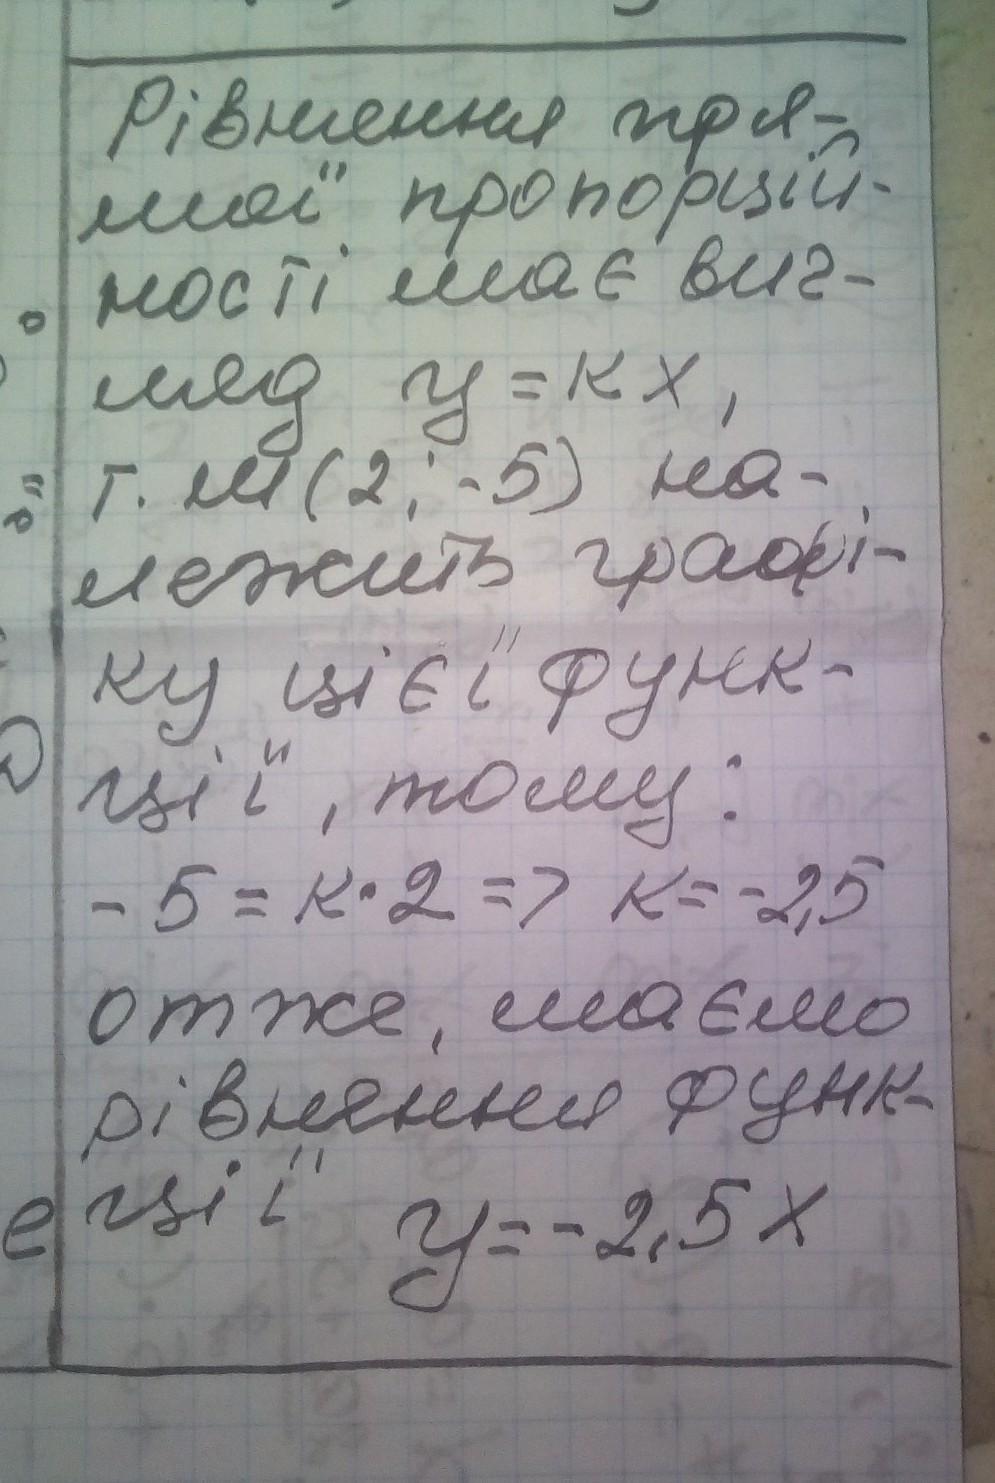 Рівняння пря-
мої пропорцій-
ності має виг-
ляд у = кх,
т. М(2; -5) на-
лежить графі-
ку цієї функ-
ції, тому:
-5 = к·2 => к = -2,5
отже, маємо
рівняння функ-
ції у = -2,5х
е